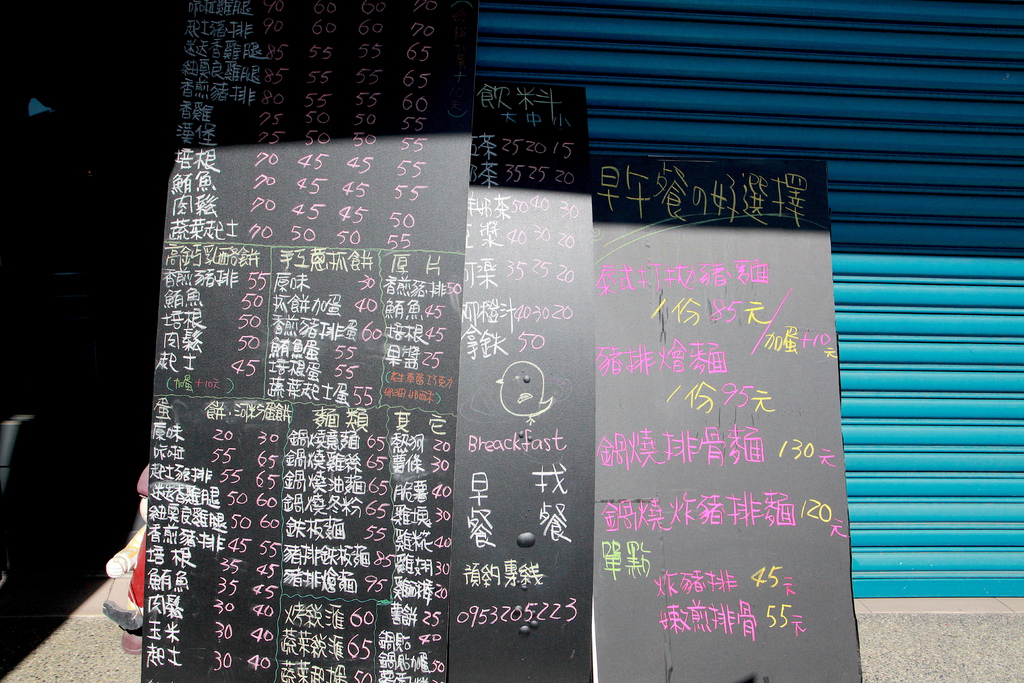 咔啦雞腿 90 60 60 70
起士豬排 90 60 60 70
迷迭香雞腿 85 55 55 65
紐奧良雞腿 85 55 55 65
香煎豬排 80 55 55 60
香雞 75 50 50 55
漢堡 75 50 50 55
培根 70 45 45 55
鮪魚 70 45 45 55
肉鬆 70 45 45 50
蔬菜起士 70 50 50 55
高鈣乳酪餅
香煎豬排 55
鮪魚 50
培根 50
肉鬆 50
起士 45
(加蛋+10元)
手工蔥抓餅
原味 30
抓餅加蛋 40
香煎豬排蛋 60
鮪魚蛋 55
培根蛋 55
蔬菜起士蛋 55
厚片
香煎豬排 50
鮪魚 45
培根 45
果醬 25
蛋餅.河粉蛋餅
原味 20 30
咔啦 55 65
起士豬排 55 65
迷迭香雞腿 50 60
紐奧良雞腿 50 60
香煎豬排 45 55
培根 35 45
鮪魚 35 45
肉鬆 30 40
玉米 30 40
起士 30 40
麵類
鍋燒意麵 65
鍋燒雞絲 65
鍋燒油麵 65
鍋燒冬粉 65
鐵板麵 55
豬排鐵板麵 85
豬排燴麵 95
烤飯糰 60
蔬菜飯糰 65
50
其它
熱狗 20
薯條 30
脆薯 40
雞塊 30
雞柳 40
雞翅 30
20
薯餅 25
鍋貼 40
鍋貼加蛋 50
飲料
大中小
茶 25 20 15
茶 35 25 20
奶茶 50 40 30
漿 40 30 20
35 25 20
柳橙汁 40 30 20
拿鐵 50
Breackfast
早餐 找餐
預約專線
0953205223
早午餐の好選擇
泰式打拋豬麵
1份 85元
/加蛋+10元
豬排燴麵
1份 95元
鍋燒排骨麵 130元
鍋燒炸豬排麵 120元
單點
炸豬排 45元
嫩煎排骨 55元